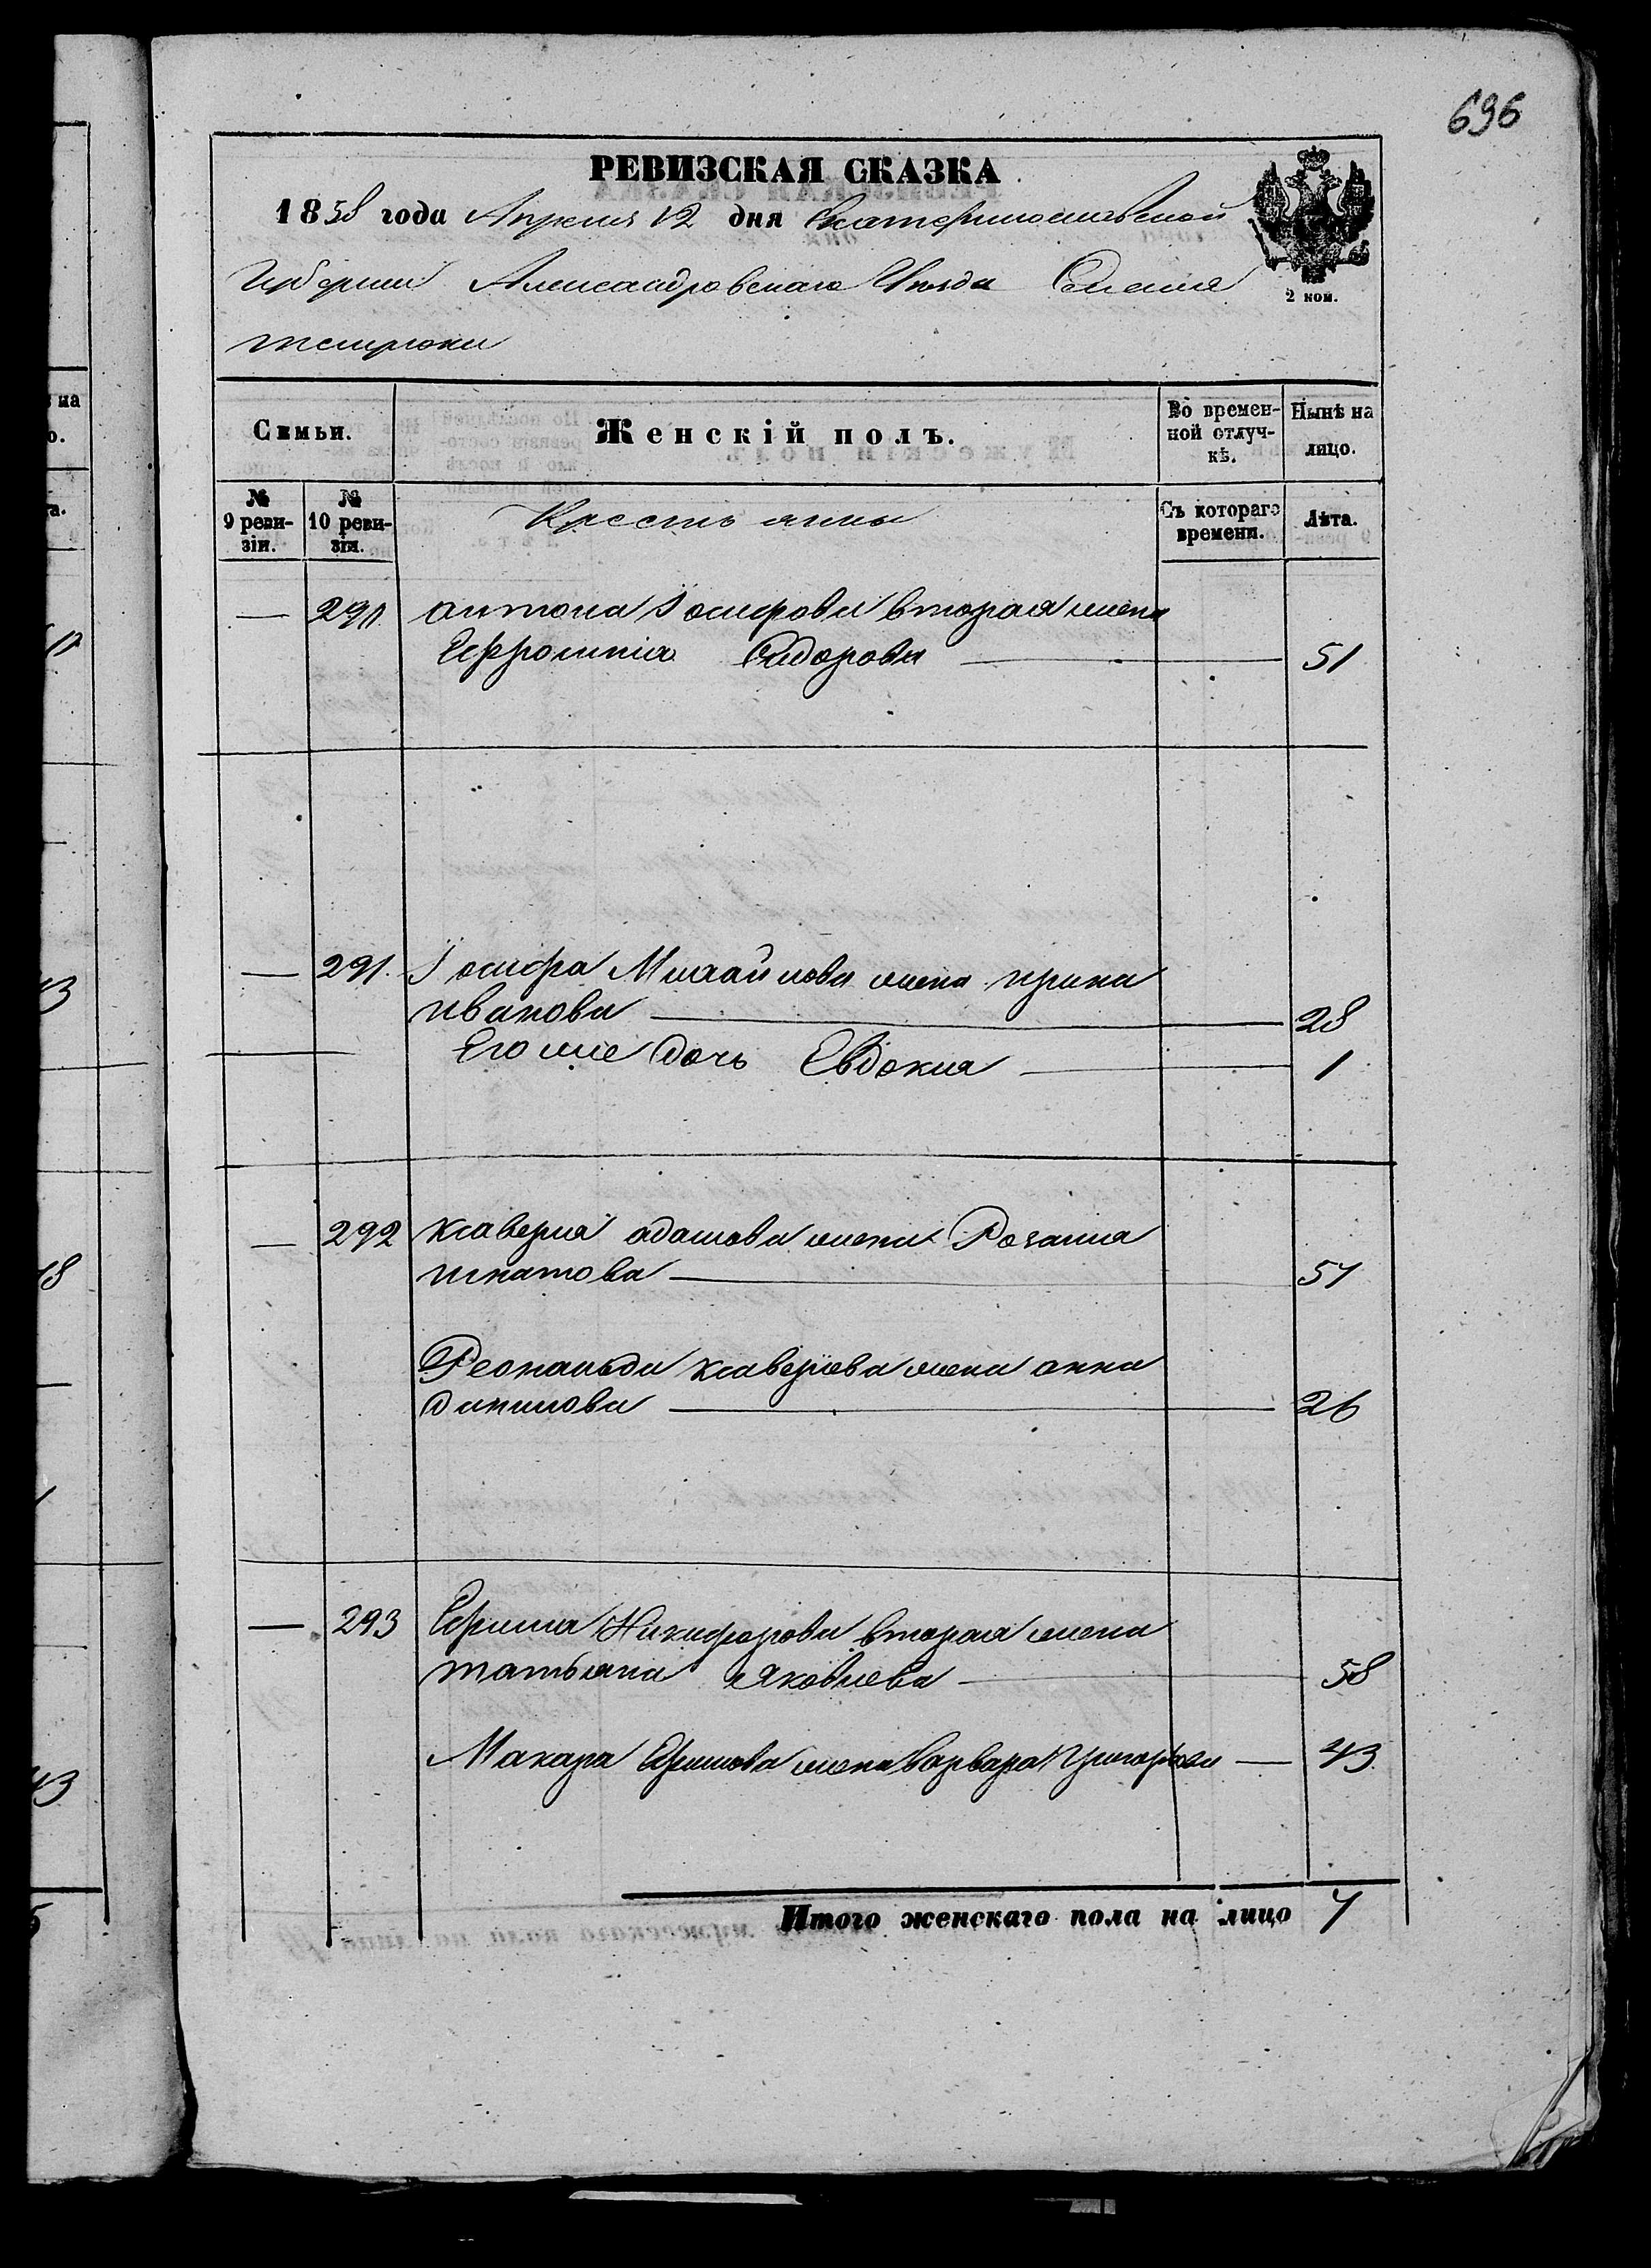 696
РЕВИЗСКАЯ СКАЗКА
1858 года Апреля 12 дня Екатеринославской
Губернии Александровскаго Уезда Селения
2 коп.
Семьи.
Женскій полъ.
Во времен-
ной отлуч-
кѣ.
Нынѣ на
лицо.
№
9 реви-
зіи.
№
10 реви-
зіи.
Крестьянны
Съ котораго
времени.
Лѣта.
— 290. антона Іосифова вторая жена
Ефросинія Сидорова — 51
— 291. Іосифа Михайлова жена ирина
иванова — 28
Его же дочь Евдокия — 1
— 292 ксаверия адамова жена Розалия
игнатова — 51
Леональда ксавериева жена анна
данилова — 26
— 293 Ефима Никифорова вторая жена
татьяна Яковлева — 58
Макара Ефимова жена варвара григорьева — 43
Итого женскаго пола на лицо 7